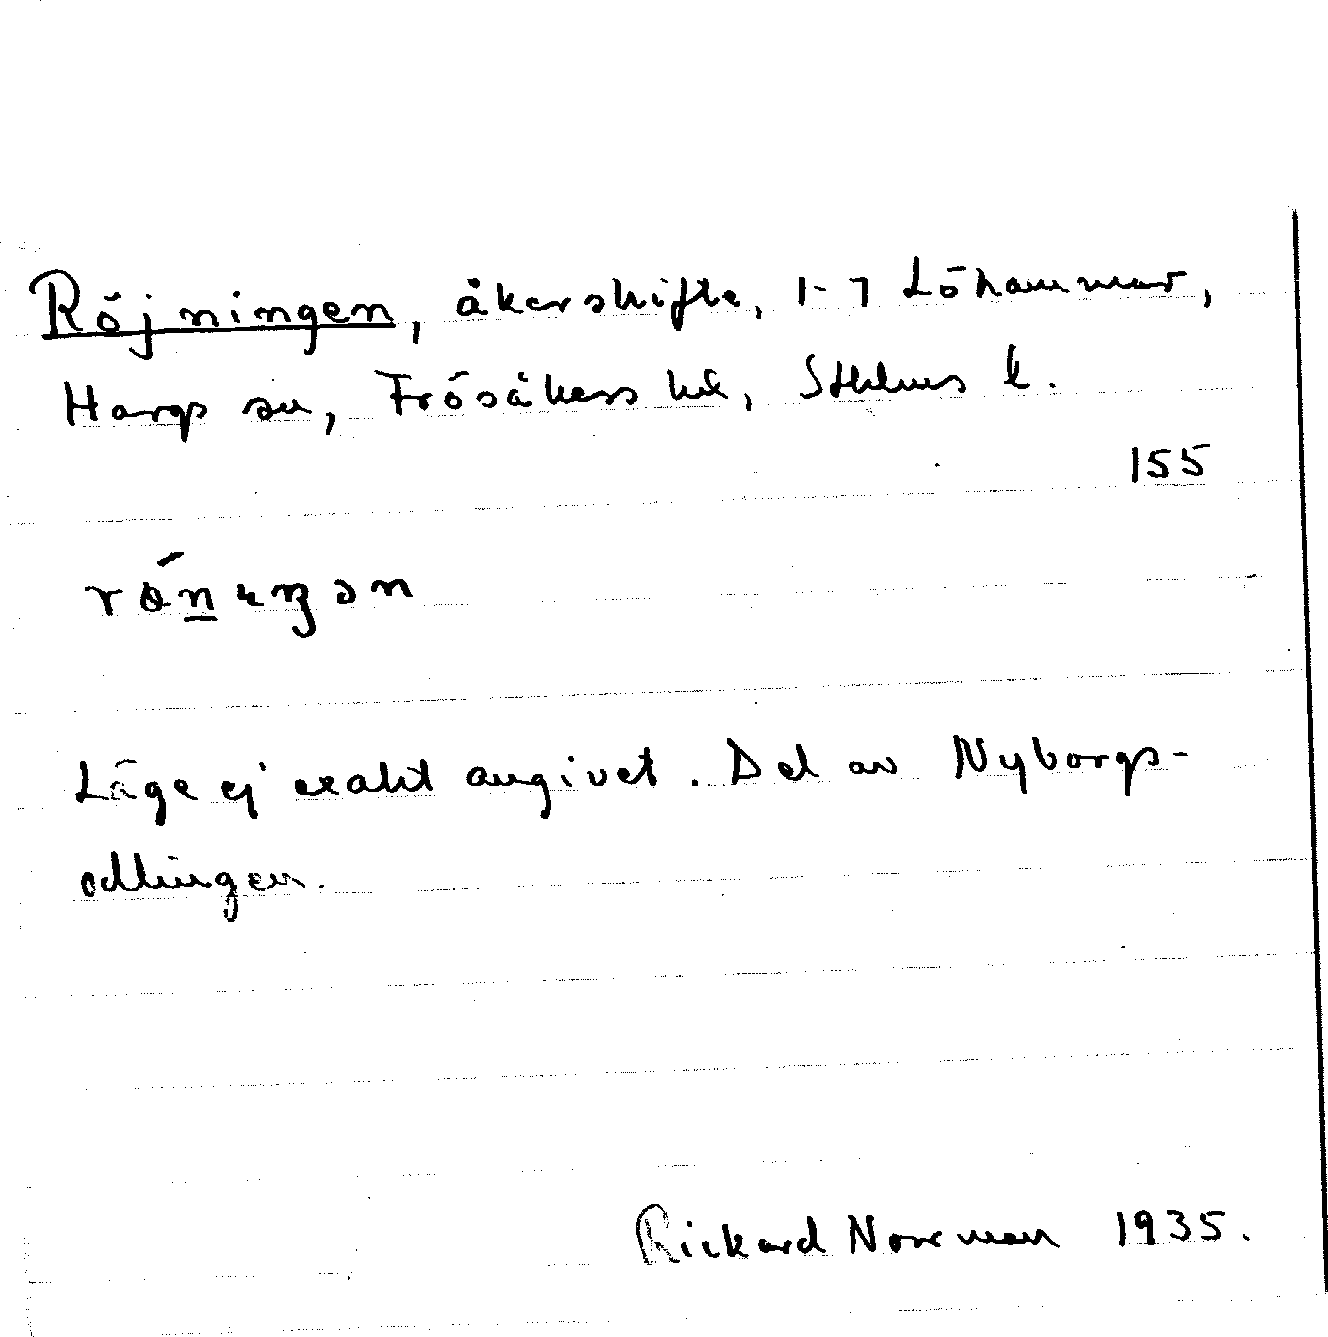 Röjningen, åkerskifte, 1-7 Löhammar,
Hargs sn, Frösåkers hd, Sthlms l.
155
Läge ej exakt angivet. Del av Nyborgs-
odlingen.
Rickard Norrman 1935.